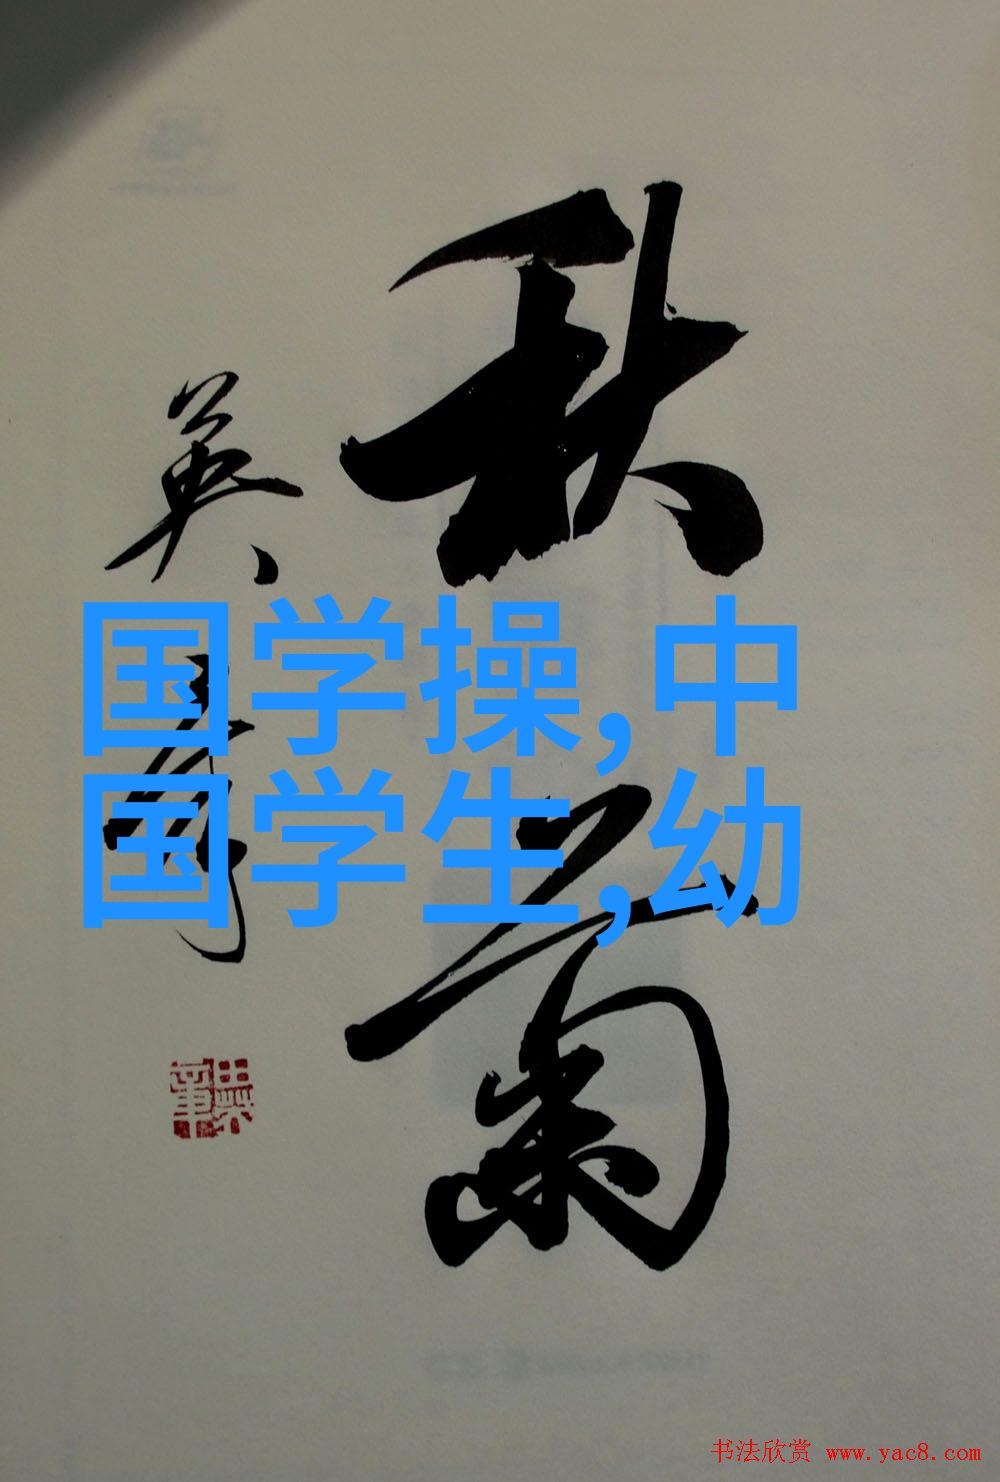 秋菊
英章
田英章
国学操,中
国学生,幼
书法欣赏 www.yac8.com